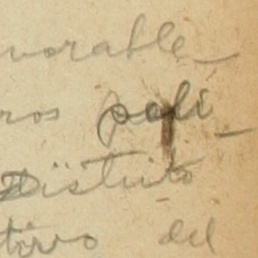 vorable_
ros poli_
Distrito
tivo del